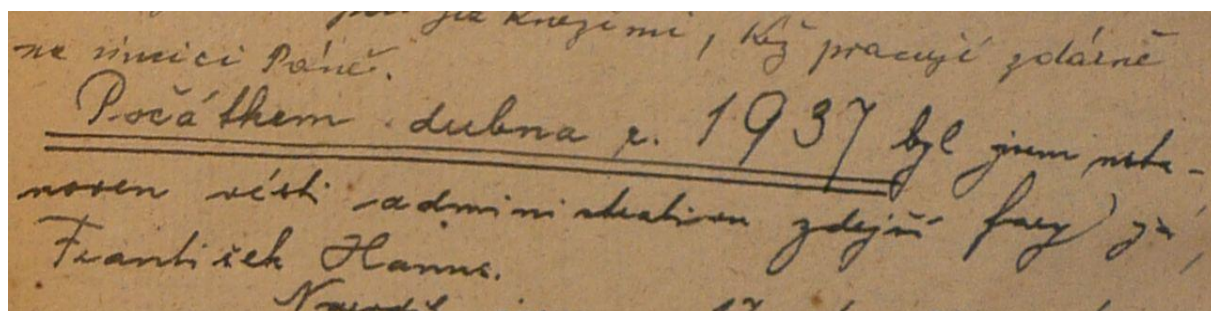 kněžími, kéž pracují zdárně
na vinici Páně.
Počátkem dubna r. 1937 byl jsem usta-
noven vésti administrativu zdejší fary já,
František Hanus.